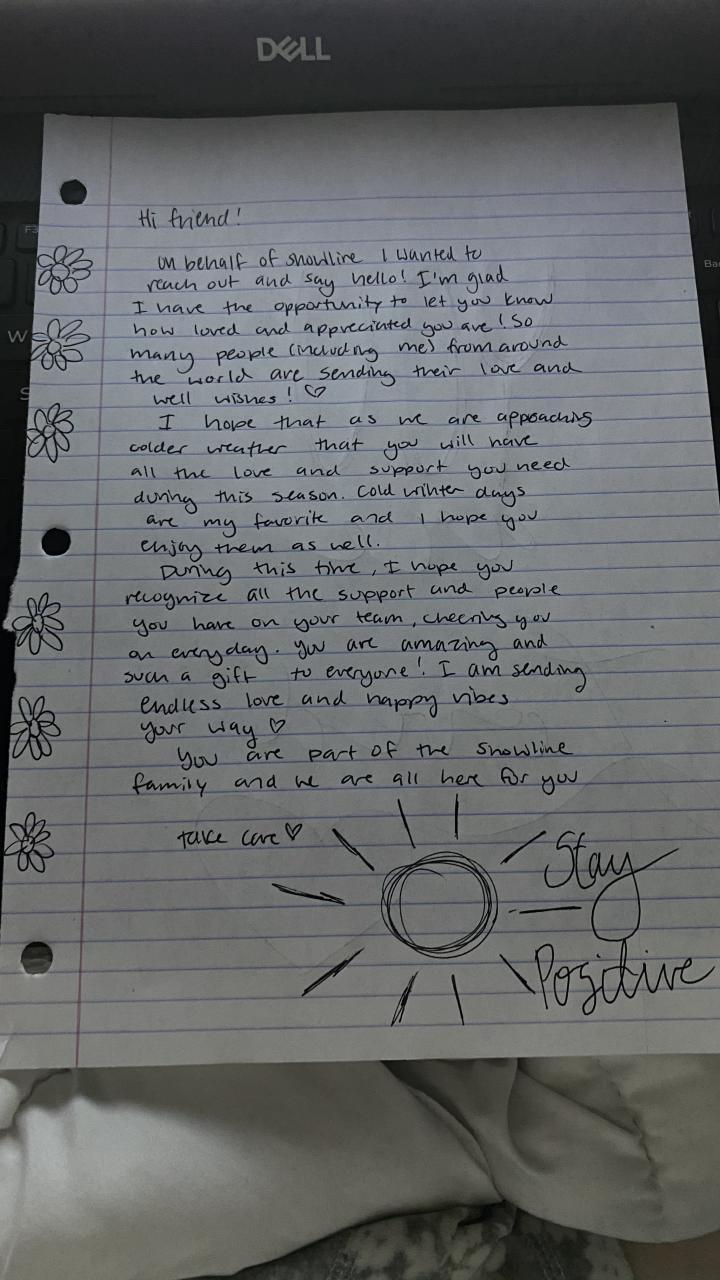 DELL
F3
W
S
Ba
Hi friend!
on behalf of snowline I wanted to
reach out and say hello! I'm glad
I have the opportunity to let you know
how loved and appreciated you are! So
many people (including me) from around
the world are sending their love and
well wishes! ♡
I hope that as we are approaching
colder weather that you will have
all the love and support you need
during this season. Cold winter days
are my favorite and I hope you
enjoy them as well.
During this time, I hope you
recognize all the support and people
you have on your team, cheering you
on everyday. you are amazing and
such a gift to everyone! I am sending
endless love and happy vibes
your way ♡
You are part of the snowline
family and we are all here for you
take care ♡
Stay
Positive